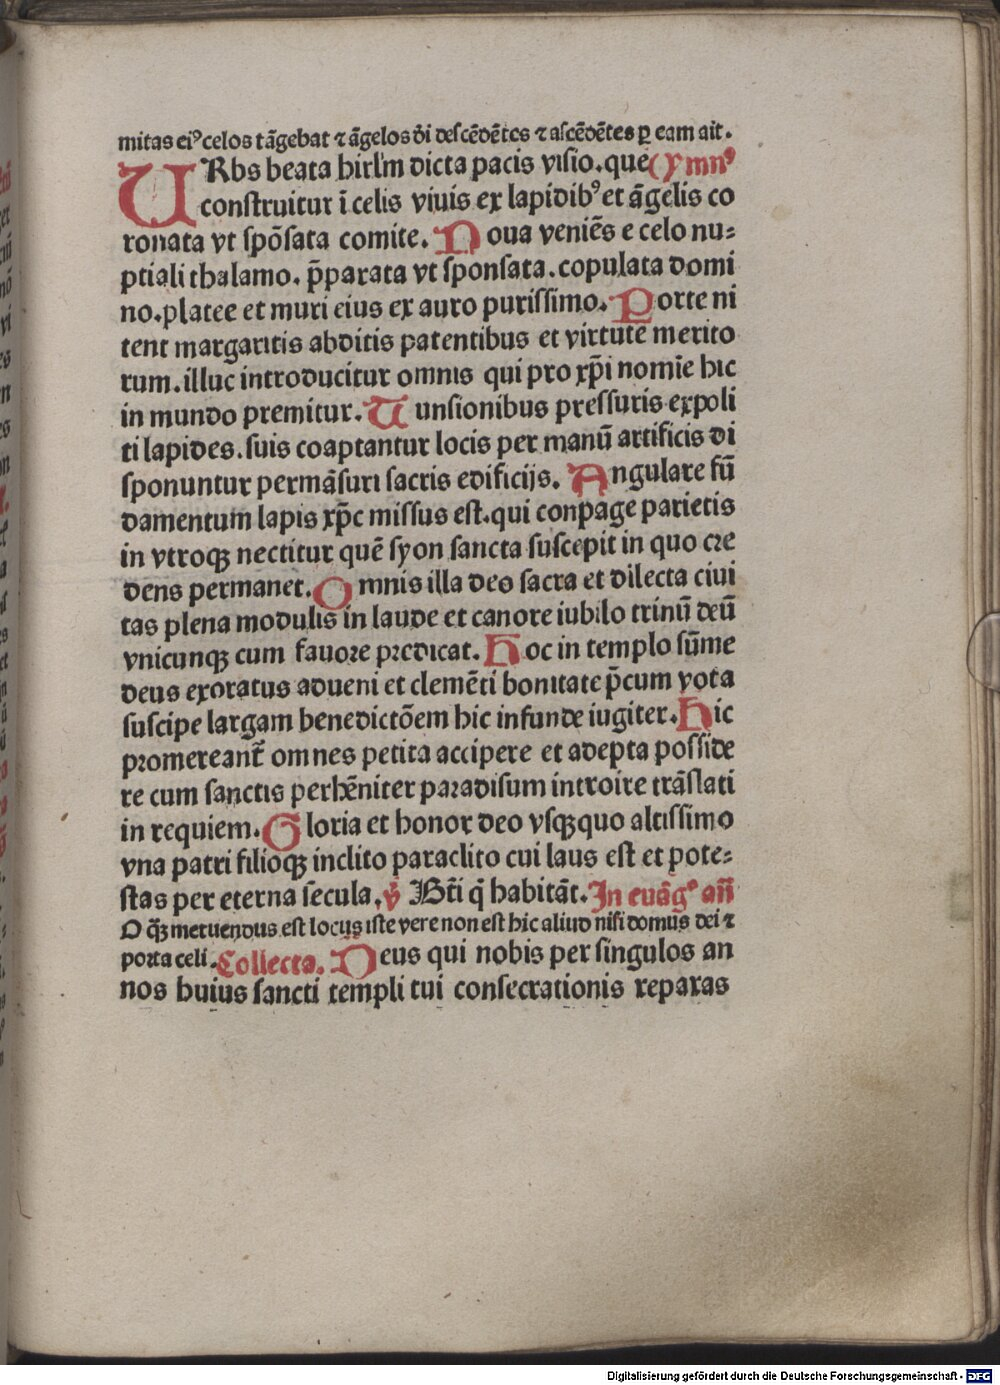 mitas eiꝰ celos tãgebat ⁊ ãgelos d̄i deſcēdētes ⁊ aſcēdētes ꝑ eam ait.
URbs beata hirl'm dicta pacis viſio.que (ymnꝰ
conſtruitur ī celis viuis ex lapidibꝰ et ãgelis co
ronata vt ſpõſata comite. Noua veniẽs e celo nu⸗
ptiali thalamo. p̄parata vt ſponſata.copulata domi
no.platee et muri eius ex auro puriſſimo. Porte ni
tent margaritis abditis patentibus et virtute merito
rum.illuc introducitur omnis qui pro xp̄i nomīe hic
in mundo premitur. Tunſionibus preſſuris expoli
ti lapides.ſuis coaptantur locis per manū artificis di
ſponuntur permãſuri ſacris edificijs. Angulare fū
damentum lapis xp̄c miſſus eſt.qui conpage parietis
in vtroqꝫ nectitur quē ſyon ſancta ſuſcepit in quo cre
dens permanet. Omnis illa deo ſacra et dilecta ciui
tas plena modulis in laude et canore iubilo trinū deū
vnicunqꝫ cum fauore predicat. Hoc in templo ſūme
deus exoratus adueni et clemēti bonitate p̄cum vota
ſuſcipe largam benedictõem hic infunde iugiter. Hic
promereant̄ omnes petita accipere et adepta poſſide
re cum ſanctis perhēniter paradiſum introire trãſlati
in requiem. Gloria et honor deo vſqꝫquo altiſſimo
vna patri filioqꝫ inclito paraclito cui laus eſt et pote⸗
ſtas per eterna ſecula. v̄ Bt̄i q̄ habitãt. In euãgꝰ an̄
O qꝫ metuendus eſt locus iſte vere non eſt hic aliud niſi domus dei ⁊
porta celi. Collecta. Deus qui nobis per ſingulos an
nos huius ſancti templi tui conſecrationis reparas
Digitalisierung gefördert durch die Deutsche Forschungsgemeinschaft - DFG